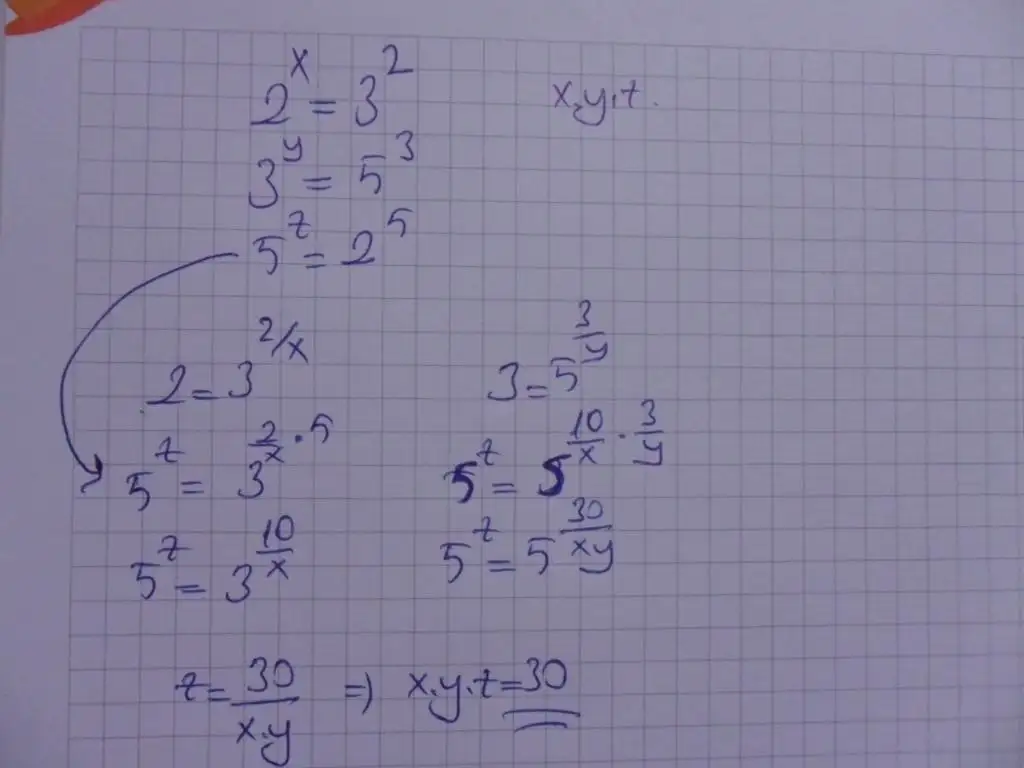 2^x = 3^2
x.y.z.
3^y = 5^3
5^z = 2^5
2 = 3^{2/x}
3 = 5^{3/y}
5^z = 3^{2/x · 5}
5^z = 5^{10/x · 3/y}
5^z = 3^{10/x}
5^z = 5^{30/xy}
z = 30/x.y => x.y.z = 30